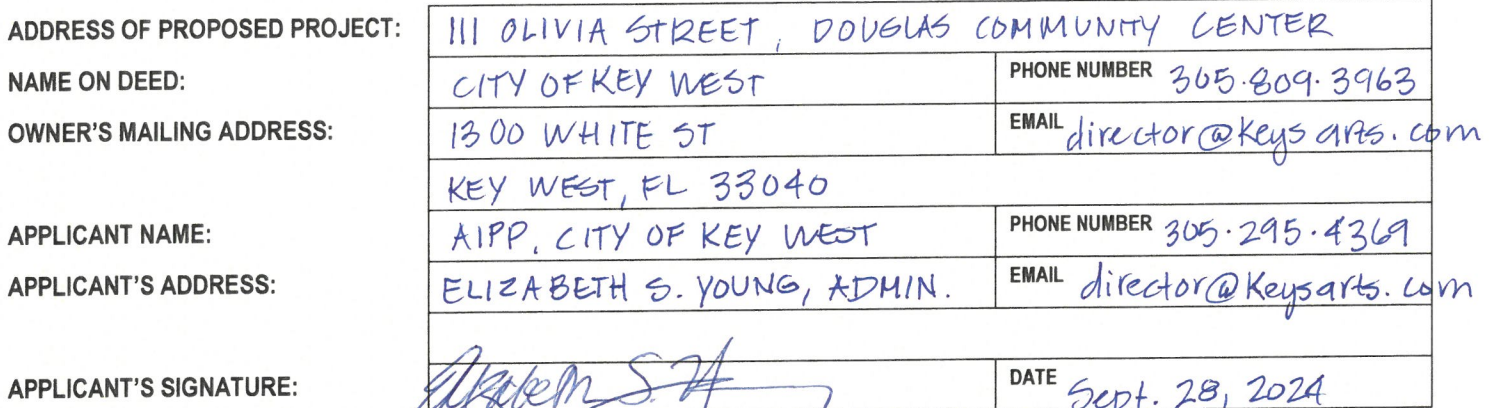 ADDRESS OF PROPOSED PROJECT: 111 OLIVIA STREET, DOUGLAS COMMUNITY CENTER
NAME ON DEED: CITY OF KEY WEST PHONE NUMBER 305.809.3963
OWNER'S MAILING ADDRESS: 1300 WHITE ST EMAIL director@keysarts.com
KEY WEST, FL 33040
APPLICANT NAME: AIPP, CITY OF KEY WEST PHONE NUMBER 305.295.4369
APPLICANT'S ADDRESS: ELIZABETH S. YOUNG, ADMIN. EMAIL director@keysarts.com
APPLICANT'S SIGNATURE: Elizabeth S. DATE Sept. 28, 2024